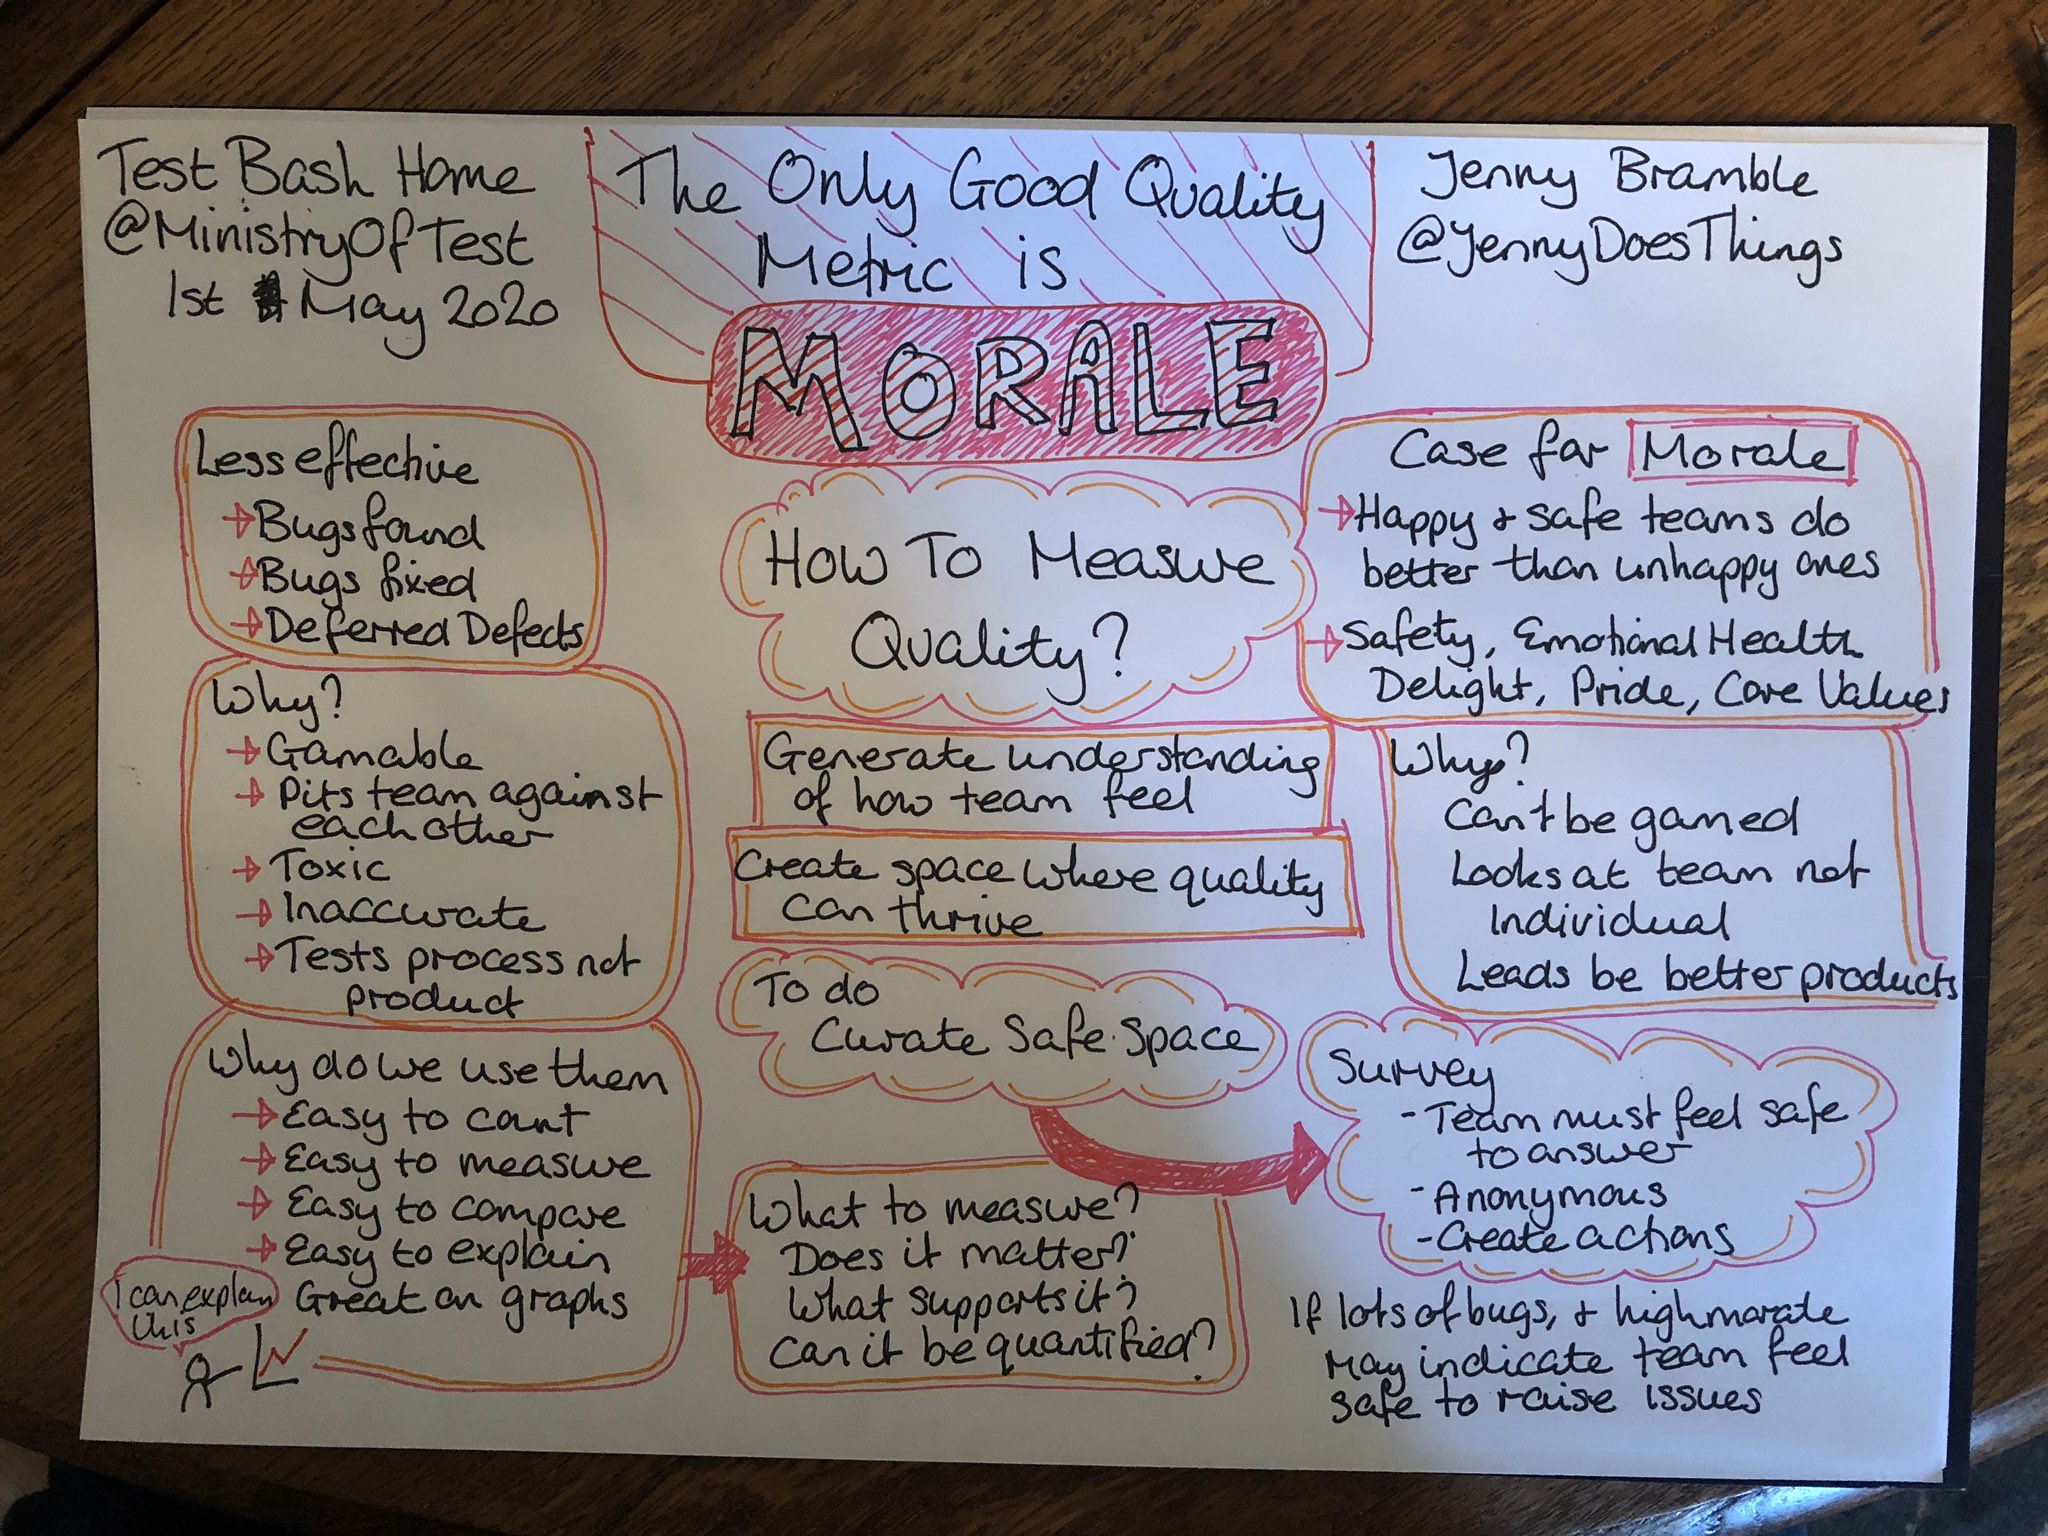 Test Bash Home
@MinistryOfTest
1st May 2020
The Only Good Quality
Metric is
MORALE
Jenny Bramble
@JennyDoesThings
Less effective
Bugs found
Bugs fixed
Deferred Defects
Why?
Gamable
Pits team against
each other
Toxic
Inaccurate
Tests process not
product
Why do we use them
Easy to count
Easy to measure
Easy to compare
Easy to explain
Great on graphs
I can explain
this
How To Measure
Quality?
Generate understanding
of how team feel
Create space where quality
can thrive
To do
Curate Safe Space
What to measure?
Does it matter?
What supports it?
Can it be quantified?
Case for Morale
Happy + safe teams do
better than unhappy ones
Safety, Emotional Health
Delight, Pride, Core Values
Why?
Can't be gamed
Looks at team not
Individual
Leads be better products
Survey
- Team must feel safe
to answer
- Anonymous
- Create actions
If lots of bugs, + high morale
May indicate team feel
safe to raise issues